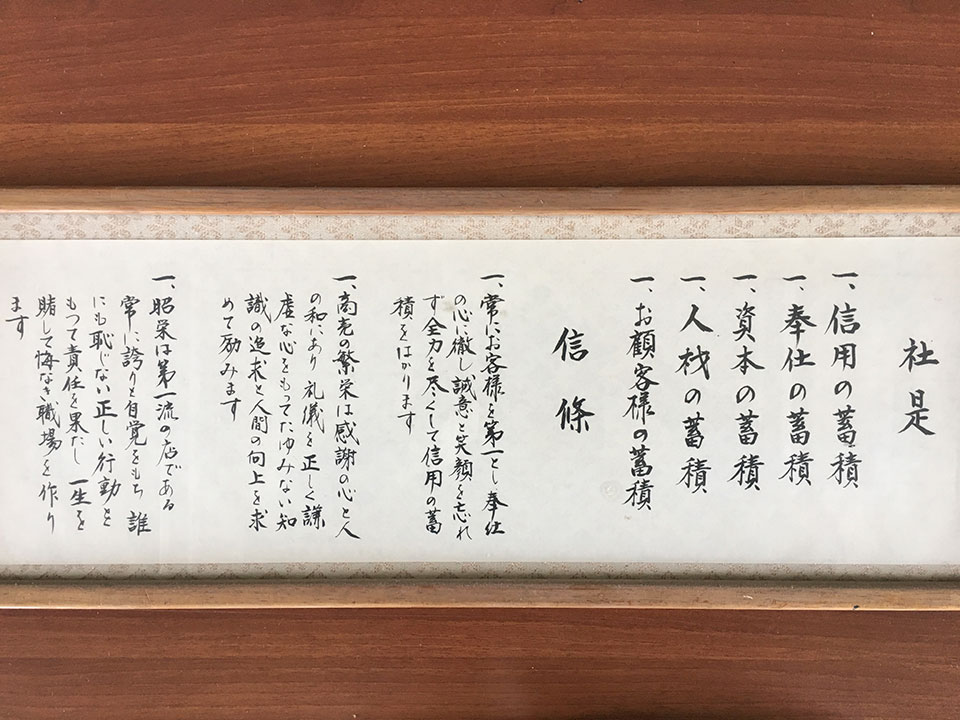 社是
一、信用の蓄積
一、奉仕の蓄積
一、資本の蓄積
一、人材の蓄積
一、お顧客様の蓄積
信條
一、常にお客様を第一とし奉仕
の心に徹し誠意と笑顔を忘れ
ず全力を尽くして信用の蓄
積をはかります
一、商売の繁栄は感謝の心と人
の和にあり 礼儀を正しく謙
虚な心をもってたゆみない知
識の追求と人間の向上を求
めて励みます
一、昭栄は第一流の店である
常に誇りと自覚をもち 誰
にも恥じない正しい行動を
もって責任を果たし 一生を
賭して悔なき職場を作り
ます